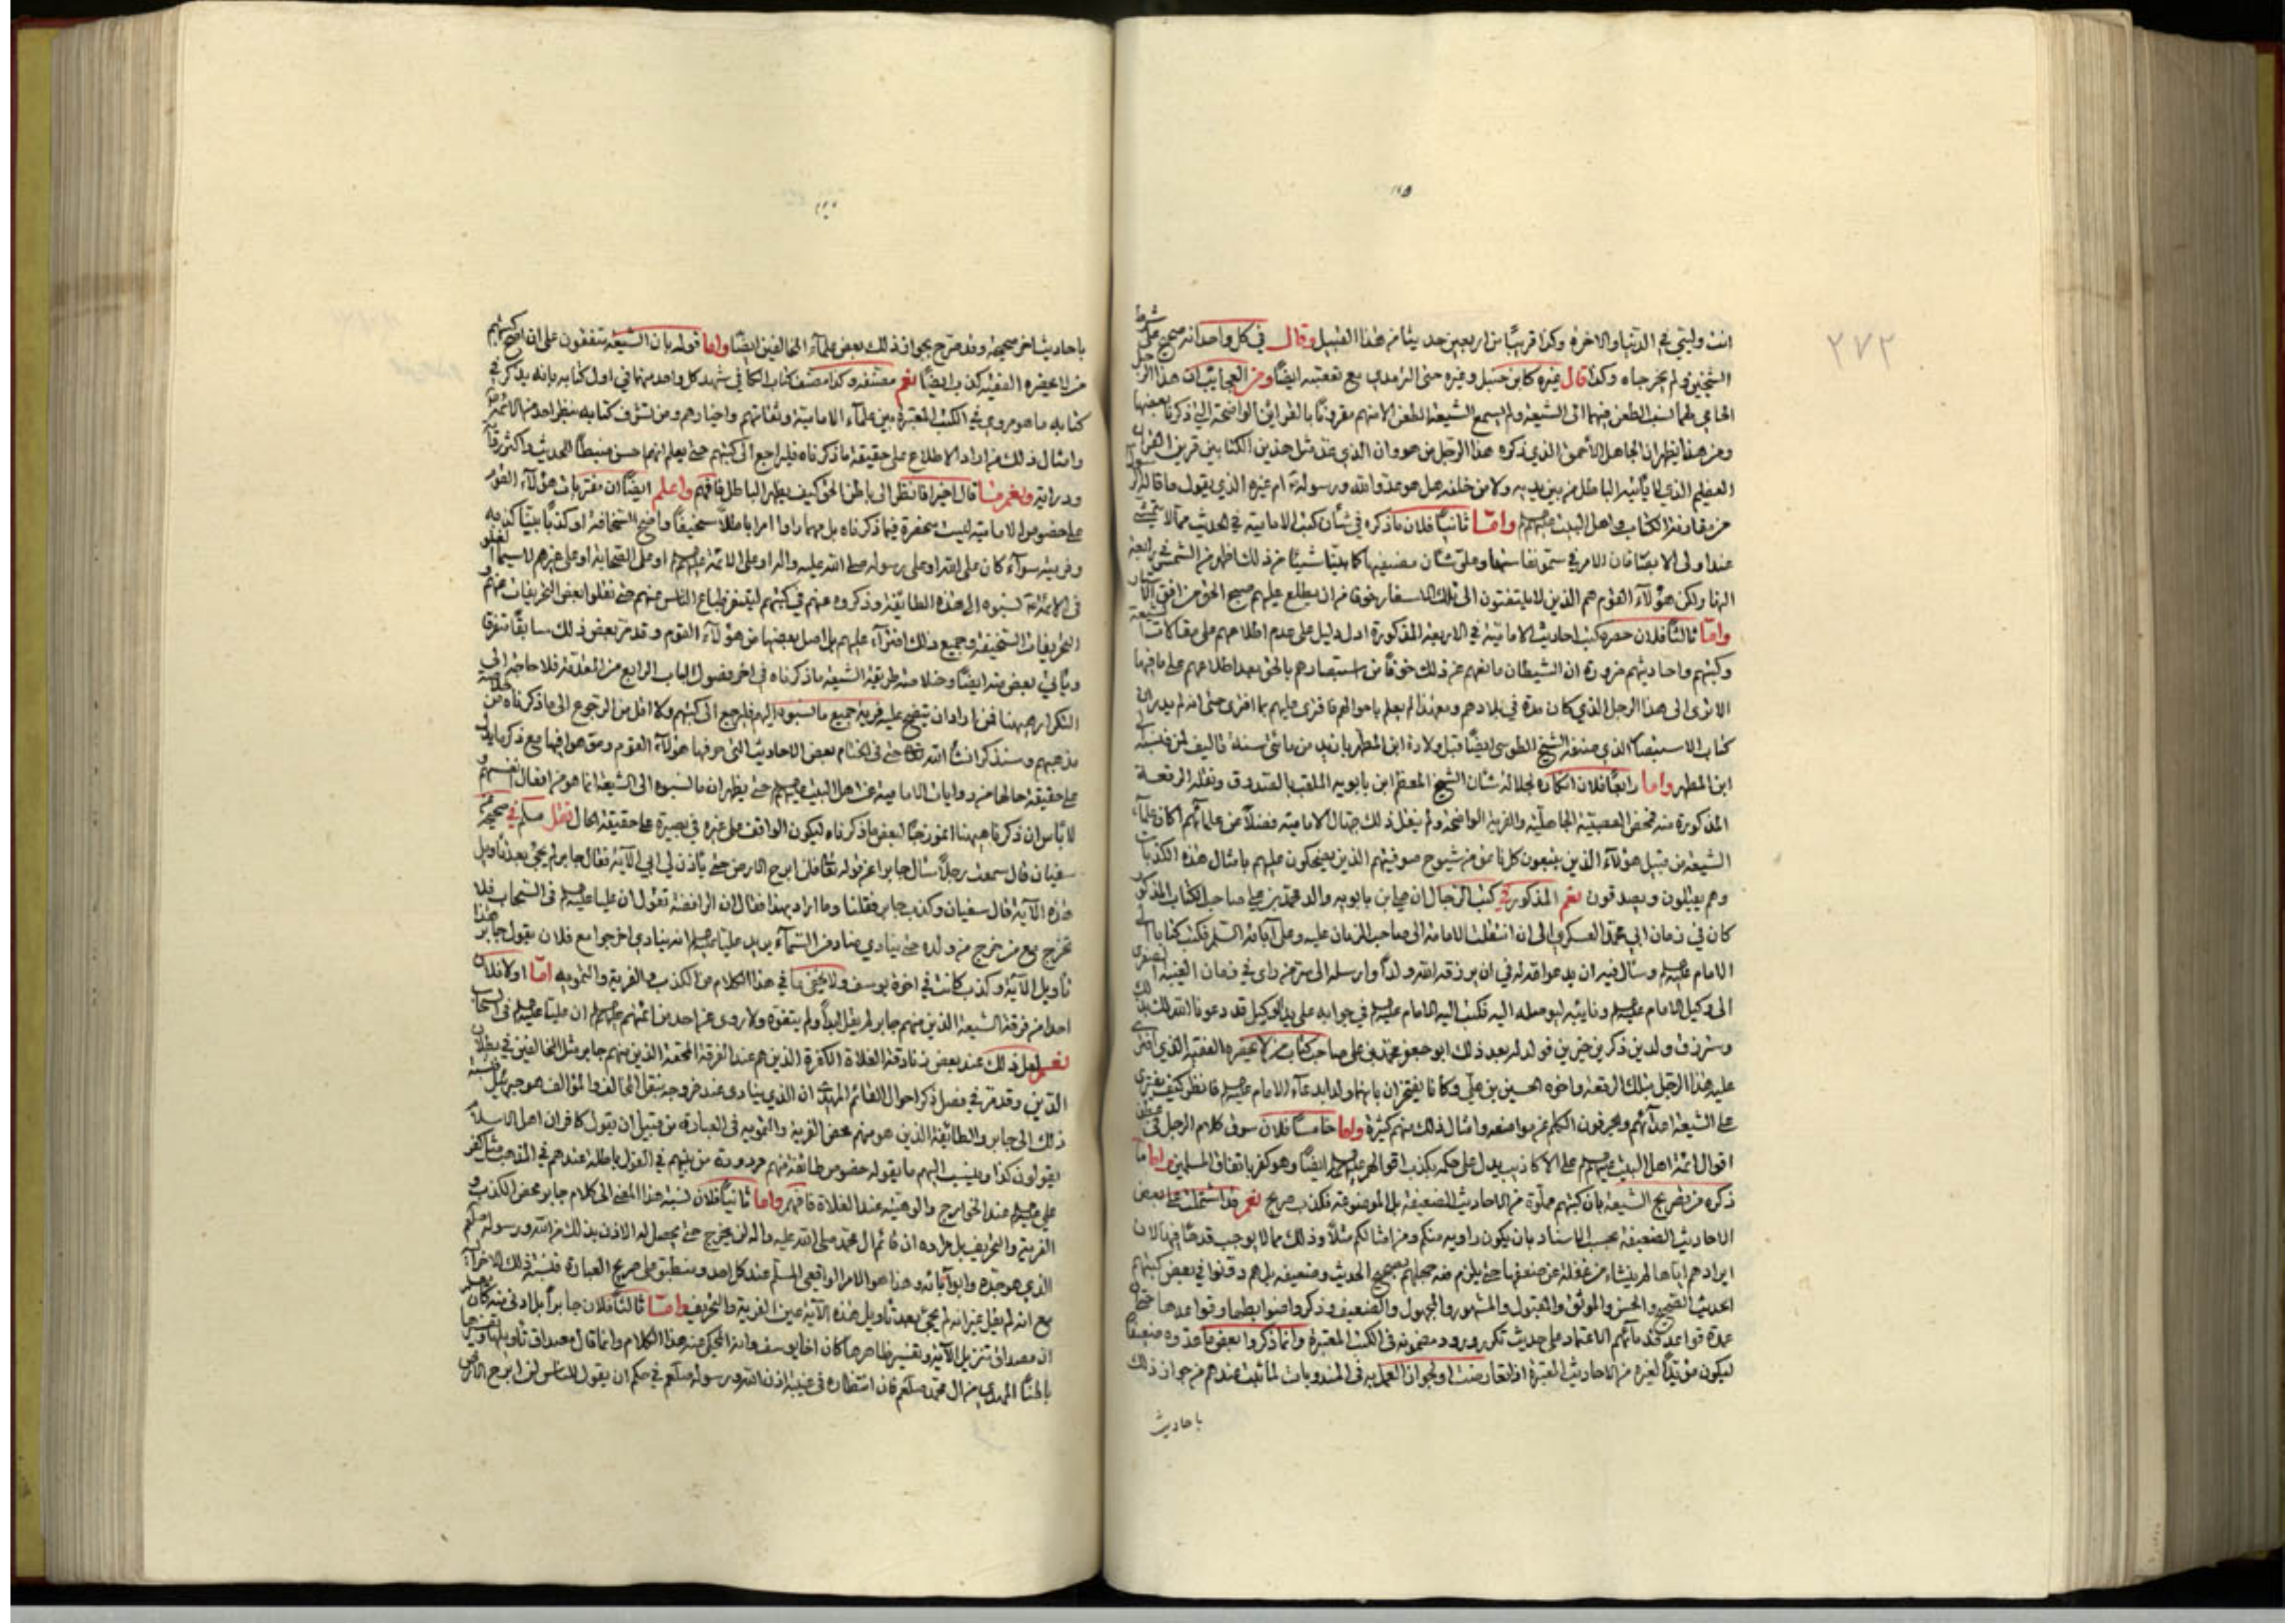 ٢٧٢
انت وليتي في الدنيا والاخرة وكذا قريبًا من اربعين حديثا من هذا القبيل وقال في كل واحد انه صحيح على شرط
الشيخين ولم يخرجاه وكذا قال غيره كابن حنبل وغيره حتى الترمذي مع تعصبه ايضًا ومن العجايب ان هذا الرجل
نسب الطعن فيهما الى الشيعة ولم يسمع الشيعة الطعن الا منهم مقرونًا بالقرائن الواضحة التي ذكرنا بعضها
ومن هذا يظهر ان الجاهل الاحمق الذي ذكره هذا الرجل من هو وان الذي عد مثل هذين الكتابين قرين القران
العظيم الذي لا يأتيه الباطل من بين يديه ولا من خلفه هل هو عدو الله ورسوله ام غيره الذي يقول ما قاله الرسول
من مقارنة الكتاب واهل البيت عليهم السلام واما ثانيًا فلان ما ذكره في شأن كتب الامامية في الحديث مما لا
عند اولي الابصار فان الامر في سمو نفاستها وعلو شان مصنفيها كما بينا شيئًا من ذلك اظهر من الشمس في رابعة
النهار ولكن هؤلاء القوم هم الذين لا يلتفتون الى تلك الاسفار خوفًا من ان يطلع عليهم صبح الحق من افق الآثار
واما ثالثًا فلان حصره كتب احاديث الامامية في الاربعة المذكورة ادل دليل على عدم اطلاعهم على مقالات الشيعة
وكتبهم واحاديثهم ضرورة ان الشيطان مانعهم عن ذلك خوفًا من استبصارهم بالحق بعد اطلاعهم على ما فيها
الا ترى الى هذا الرجل الذي كان مدة في بلادهم ومع هذا لم يعلم باحوالهم فافترى عليهم بما افترى حتى انه لم يدر ان
كتاب الاستبصار الذي صنفه الشيخ الطوسي ايضًا قبل ولادة ابن المطهر بازيد من مائتي سنة تاليف لمن نسبه الى
ابن المطهر واما رابعًا فلان انكاره لجلالة شان الشيخ المعظم ابن بابويه الملقب بالصدوق ونقله الرقعة
المذكورة منه محض العصبية الجاهلية والفرية الواضحة ولم يفعل ذلك جهال الامامية فضلًا عن علمائهم اكان علماء
الشيعة من قبيل هؤلاء الذين يتبعون كل ناعق من شيوخ صوفيتهم الذين يضحكون عليهم بامثال هذه الكذبات
وهم يقبلون ويصدقون نعم المذكور في كتب الرجال ان علي بن بابويه والد محمد بن علي صاحب الكتاب المذكور
كان في زمان ابي محمد العسكري الى ان انتقلت الامامة الى صاحب الزمان عليه وعلى آبائه السلام فكتب كتابا الى
الامام عليه السلام وسأل فيه ان يدعوا له في ان يرزقه الله ولدًا وارسله الى في زمان الغيبة الصغرى
الى وكيل الامام عليه السلام ونايبه ليوصله اليه فكتب اليه الامام عليه السلام في جوابه على يد الوكيل قد دعونا الله لك بذلك
وسترزق ولدين ذكرين خيرين فولد له بعد ذلك ابو جعفر محمد بن علي صاحب كتاب من لا يحضره الفقيه الذي افترى
عليه هذا الرجل بتلك الرقعة واخوه الحسين بن علي وكانا يفتخران بانهما ولدا بدعاء الامام عليه السلام فانظر كيف يفترى
على الشيعة اعداؤهم ويحرفون الكلم عن مواضعه وامثال ذلك منهم كثيرة واما خامسًا فلان سوق كلام الرجل في
اقوال ائمة اهل البيت عليهم السلام على الاكاذيب يدل على حكمه بكذب اقوالهم عليهم السلام ايضًا وهو كفر باتفاق المسلمين واما ما
ذكره من تصريح الشيعة بان كتبهم مملوة من الاحاديث الضعيفة بل الموضوعة فكذب صريح نعم قد اشتملت على بعض
الاحاديث الضعيفة بحسب الاسناد بان يكون راويه منكم ومن امثالكم مثلًا وذلك مما لا يوجب قدحًا فيها لان
ايرادهم اياها لم ينشاء من غفلة عن ضعفها حتى يلزم منه جهلهم بصحيح الحديث وضعيفه بل هم دونوا في بعض كتبهم
الحديث الصحيح والحسن والموثق والمقبول والمشهور والمجهول والضعيف وذكروا ضوابطها وقواعدها حتى ان
عدة قواعد قدمائهم الاعتماد على حديث تكرر ورود مضمونه في الكتب المعتبرة وانما ذكروا بعض ما عدوه ضعيفًا
ليكون مؤيدًا لغيره من الاحاديث المعتبرة او لتعارضت او لجواز العمل به في المندوبات لما ثبت عندهم من جواز ذلك
باحاديث
باحاديث اخر صحيحة وقد صرح بجواز ذلك بعض علماء المخالفين ايضًا واما قوله بان الشيعة متفقون على ان اصح كتبهم
من لا يحضره الفقيه كذب ايضًا نعم مصنفه وكذا مصنف كتاب الكافي شهد كل واحد منهما في اول كتابه بانه يذكر في
كتابه ما هو مروي في الكتب المعتبرة بين علماء الامامية وثقاتهم واخيارهم ومن تشرف كتابه بنظر احد من الائمة
وامثال ذلك من اراد الاطلاع على حقيقة ما ذكرناه فليراجع الى كتبهم حتى يعلم انهم احسن ضبطًا للحديث واكثر
ودراية ونعم ما قال اخيرا فانظر الى باطن الحق كيف يظهر الباطل فافهم واعلم ايضًا ان مفتريات هؤلاء القوم
على خصوص الامامية ليست منحصرة فيما ذكرناه بل مهما راوا امرا باطلًا سخيفًا واضح السخافة او كذبًا بيّنًا كذبه
وفريته سواء كان على الله او على رسوله صلى الله عليه واله او على الائمة عليهم السلام او على الصحابة او على غيرهم لا سيما
في الائمة نسبوه الى هذه الطايفة وذكروه عنهم في كتبهم لينفر طباع الناس عنهم حتى نقلوا بعض التحريفات عنهم و
التحريفات السخيفة وجميع ذلك افتراء عليهم بل اصل بعضها من هؤلاء القوم وقد مر بعض ذلك سابقًا متفرقا
ويأتي بعض منه ايضًا وخلاصة طريقة الشيعة ما ذكرناه في اخر فصول الباب الرابع من المقدمة فلا حاجة الى
التكرار ههنا فمن اراد ان يتضح عليه فرية جميع ما نسبوه اليهم فليرجع الى كتبهم ولا اقل من الرجوع الى ما ذكرناه من خلاصة
مذهبهم وسنذكر انشاء الله تعالى حتى في الختام بعض الاحاديث التي حرفها هؤلاء القوم مع ذكر ما يدل
على حقيقة حالها من روايات الامامية عن اهل البيت عليهم السلام حتى يظهر ان ما نسبوه الى الشيعة انما هو من افعال انفسهم و
لا باس ان ذكرنا ههنا انموذجًا لبعض ما ذكرناه ليكون الواقف على غيره في بصيرة على حقيقة الحال نقل مسلم في صحيحه عن
سفيان قال سمعت رجلًا سأل جابرا عن قوله تعالى فلن ابرح الارض حتى يأذن لي ابي الآية فقال جابر لم يجئ بعد تأويل
هذه الآية قال سفيان وكذب جابر فقلنا وما اراد بهذا فقال ان الرافضة تقول ان عليا عليه السلام في السحاب فلا
تخرج مع من يخرج من ولده حتى ينادي مناد من السماء يريد عليًا عليه السلام انه ينادي اخرجوا مع فلان يقول جابر هذا
تأويل الآية وكذب كانت في اخوة يوسف ولا يخفى ما في هذا الكلام من الكذب والفرية والتمويه اما اولا فلان
احدا من فرقة الشيعة الذين منهم جابر لم يقل ابدًا ولم يتفوه ولا روى عن احد من ائمتهم عليهم السلام ان عليًا عليه السلام في السحاب
نعم لعل ذلك عند بعض زنادقة الغلاة الكفرة الذين هم عند الفرقة المحقة الذين منهم جابر مثل المخالفين في بطلان
الدين وقد مر في فصل ذكر احوال القائم المهدي ان الذي ينادى عند خروجه بنقل المخالف والمؤالف هو جبرئيل فنسبة
ذلك الى جابر والطائفة الذين هو منهم محض الفرية والتمويه في العبارة من قبيل ان يقول كافر ان اهل الاسلام
يقولون كذا وينسب اليهم ما يقوله خصوص طائفة منهم مردودة من بينهم في القول باطلة عندهم في المذهب مثل كفر
علي عليه السلام عند الخوارج والوهيته عند الغلاة فافهم واما ثانيًا فلان نسبة هذا المعنى الى كلام جابر محض الكذب و
الفرية والتحريف بل مراده ان قائم ال محمد صلى الله عليه واله لن يخرج حتى يحصل له الاذن بذلك من الله ورسوله صلعم
الذي هو جده وابو آبائه وهذا هو الامر الواقعي المسلم عند كل احد ومنطبق على صريح العبارة فنسبة ذلك الاخر اليه
مع انه لم يقل غير انه لم يجئ بعد تأويل هذه الآية عين الفرية والتحريف واما ثالثًا فلان جابرا بلا دنى منه كان
ان مصداق تنزيل الآية وتفسير ظاهرها كان اخا يوسف وانه المحكي عنه هذا الكلام وانما قال مصداق تأويلها
باطنًا المهدي من ال محمد صلعم فان انتظاره في غيبته اذن الله ورسوله صلعم في حكم ان يقول للناس لن ابرح الارض